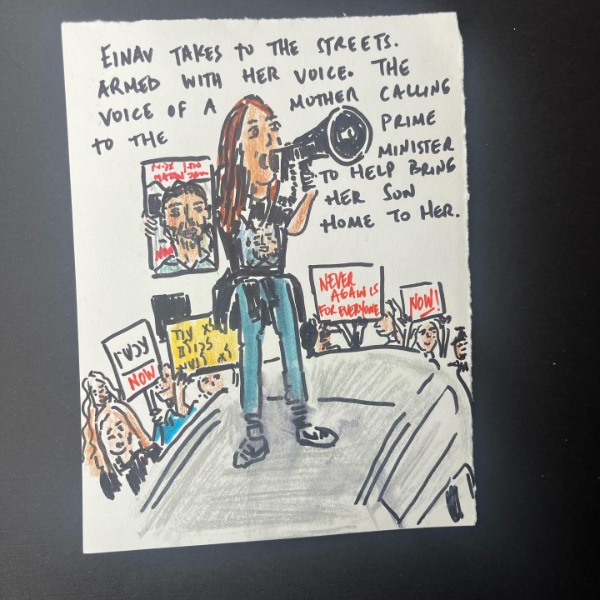 EINAV TAKES TO THE STREETS.
ARMED WITH HER VOICE. THE
VOICE OF A MOTHER CALLING
TO THE PRIME
MINISTER
TO HELP BRING
HER SON
HOME TO HER.
MATAN
NOW
NEVER
AGAIN IS
FOR EVERYONE
NOW!
עכשיו
NOW